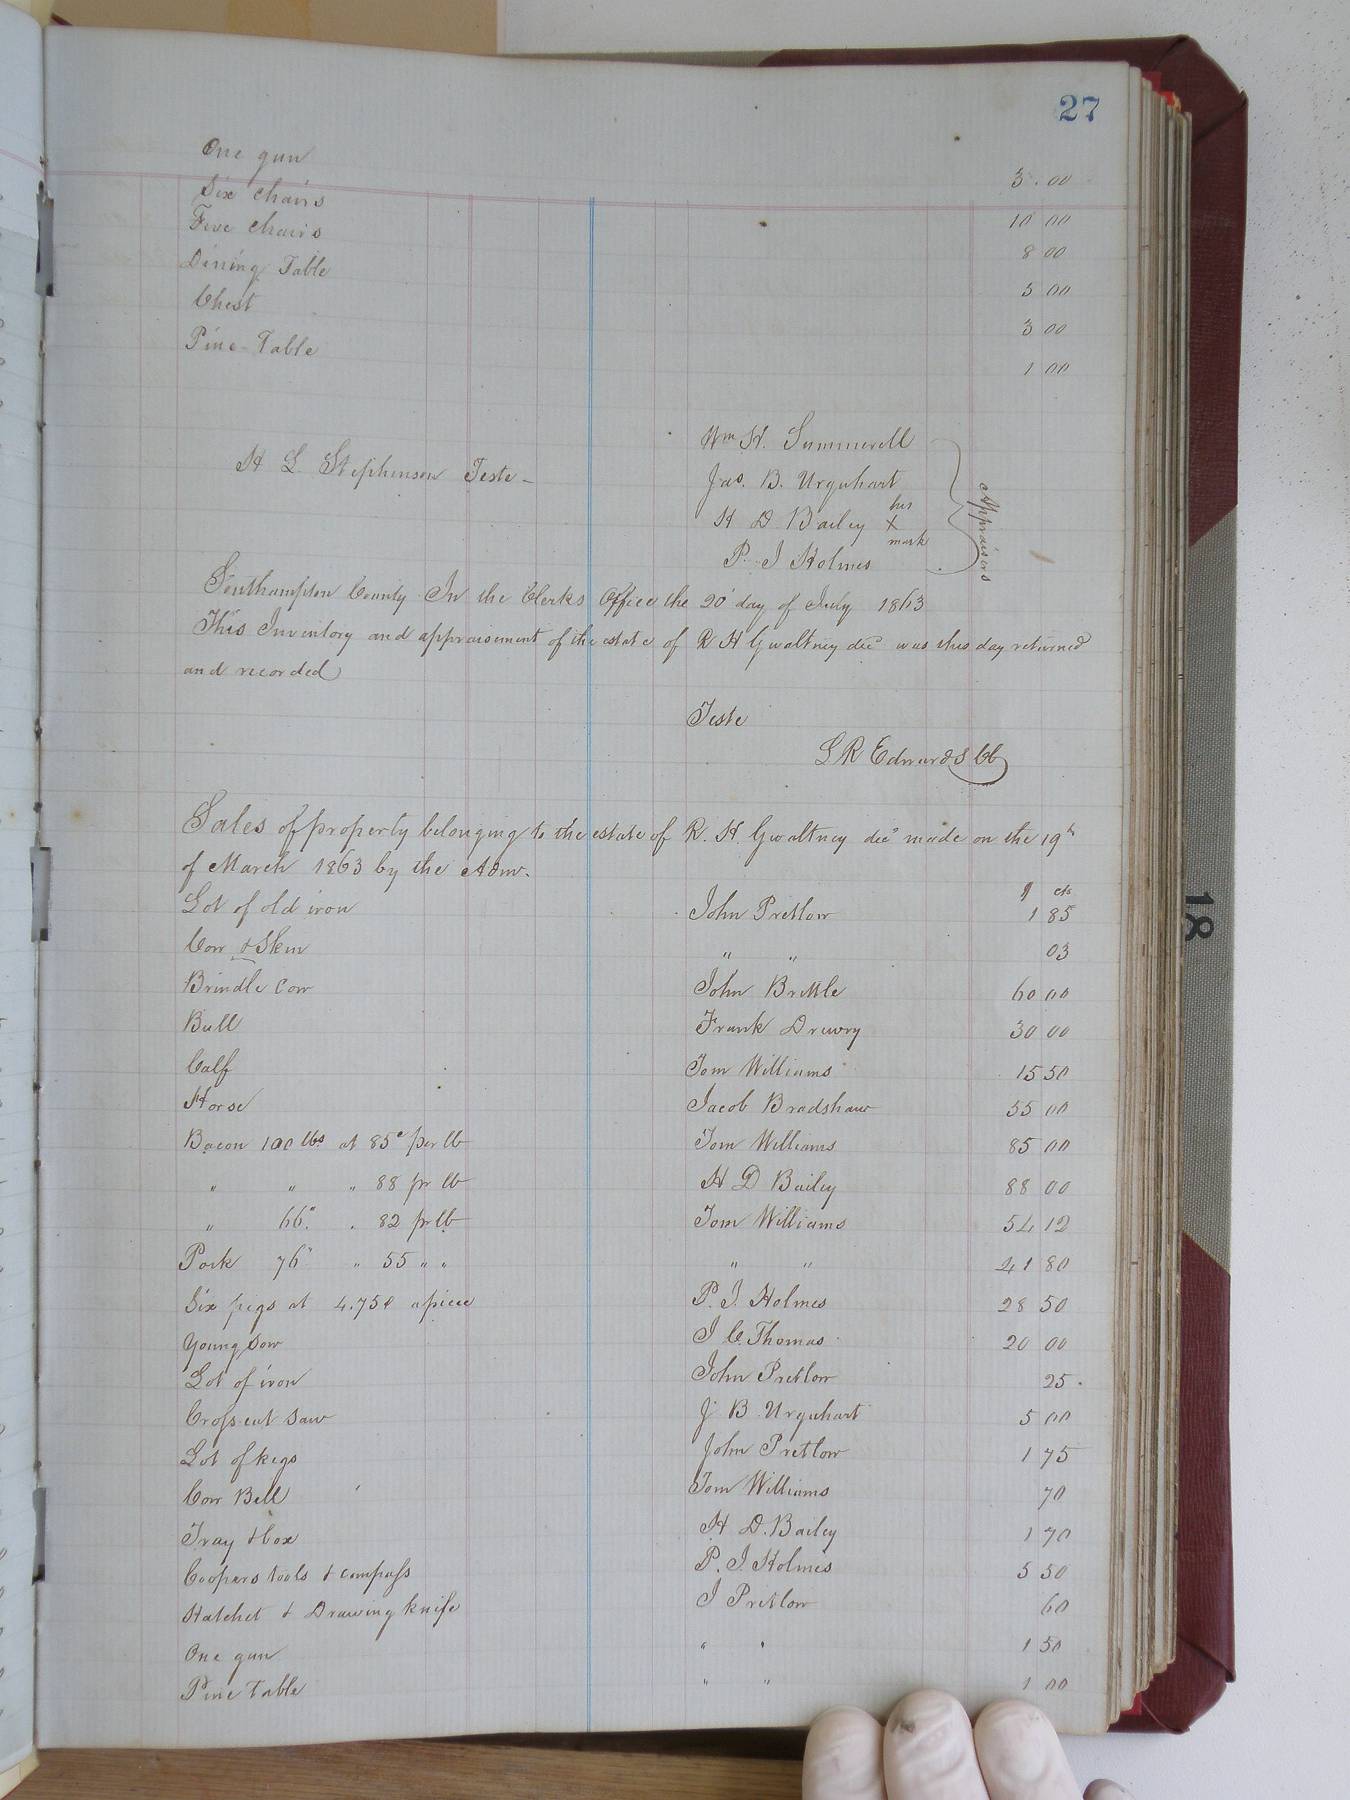 27
One gun 3.00
Six chairs 10 00
Five chairs 8 00
Dining Table 5 00
Chest 3 00
Pine Table 1 00
Wm H. Summerell
H L Stephenson Teste - Jas. B. Urquhart
his
H D Bailey X
mark
P. J Holmes
Appraisers
Southampton County In the Clerks Office the 20 day of July 1863
This Inventory and appraisement of the estate of R H Gwaltney decd was this day returned
and recorded
Teste
L R Edwards CC
Sales of property belonging to the estate of R. H. Gwaltney decd made on the 19th
of March 1863 by the Adm.
$ cts
Lot of old iron John Pretlow 1 85
Cow & Skin " " 03
Brindle Cow John Brittle 60 00
Bull Frank Drewry 30 00
Calf Tom Williams 15 50
Horse Jacob Bradshaw 55 00
Bacon 100 lbs at 85c per lb Tom Williams 85 00
" " " 88 pr lb H D Bailey 88 00
" 66" . 82 pr lb Tom Williams 54 12
Pork 76" " 55 " " " " 41 80
Six pigs at 4.75c apiece P. J. Holmes 28 50
Young Sow J C. Thomas 20 00
Lot of iron John Pretlow 25.
Cross cut Saw J B Urquhart 5 00
Lot of kegs John Pretlow 1 75
Cow Bell Tom Williams 70
Tray & box H D. Bailey 1 70
Coopers tools & compass P. J. Holmes 5 50
Hatchet & Drawing knife J Pretlow 60
One gun " " 1 50
Pine Table " " 1 00
18